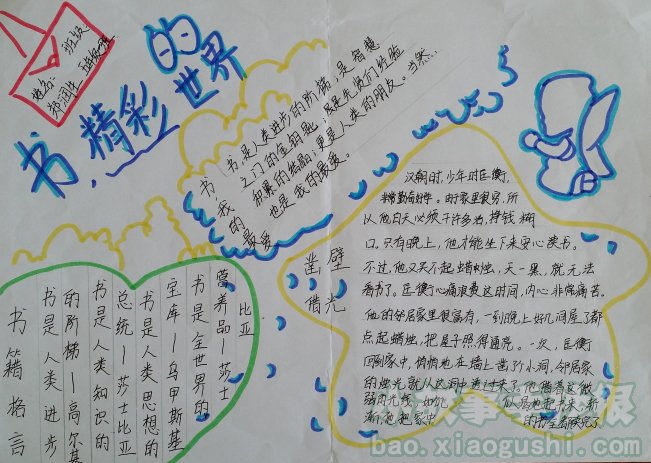 班级
姓名:
书,精彩的世界
书,我的最爱
书是人类进步的阶梯,是智慧
之门的金钥匙;既是先贤们经验
积累的结晶;更是人类的朋友。当然…
也是我的最爱。
凿壁
借光
汉朝时,少年时匡衡,
非常勤奋好学。由于家里很穷,所
以他白天必须干许多活,挣钱糊
口。只有晚上,他才能坐下来安心读书。
不过,他又买不起蜡烛,天一黑,就无法
看书了。匡衡心痛浪费这时间,内心非常痛苦。
他的邻居家里很富有,一到晚上好几间屋子都
点起蜡烛,把屋子照得通亮。一次,匡衡
回到家中,悄悄地在墙上凿了个小洞,邻居家
的烛光就从这洞中透过来了。他借着这微
弱的光线,如饥 似渴地起书来,渐
渐地把家中 的书全都读完了
书籍格言
书是人类进步
的阶梯—高尔基
书是人类知识的
总统—莎士比亚
书是人类思想的
宝库—乌申斯基
书是全世界的
营养品—莎士
比亚
bao.xiaogushi.com